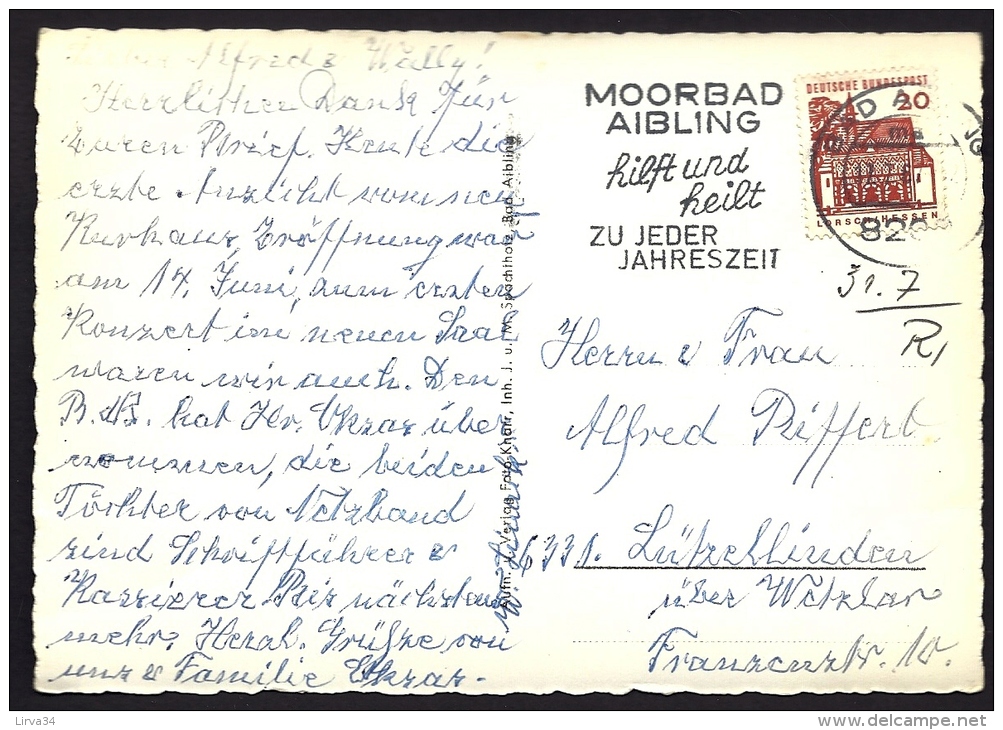 Alfred & Wally!
Herzlichen Dank für
Euren Brief. Heute die
erste Ansicht vom neuen
Kurhaus, Eröffnung war
am 14. Juni, zum ersten
Konzert im neuen Saal
waren wir auch. Den
hat Hr. über
nommen, die beiden
Töchter von Netzband
sind Schriftführer &
Kassierer Bis nächstens
mehr. Herzl. Grüße von
uns & Familie
Aufn. u. Verlag Foto-Knarr, Inh. J. u. M. Spachtholz, Bad Aibling
MOORBAD
AIBLING
hilft und
heilt
ZU JEDER
JAHRESZEIT
DEUTSCHE BUNDESPOST
20
LORSCH/HESSEN
820
31. 7
Herrn & Frau
Alfred Piffert
6331. Lützellinden
über Wetzlar
Franzenstr. 10.
Lirva34
www.delcampe.net